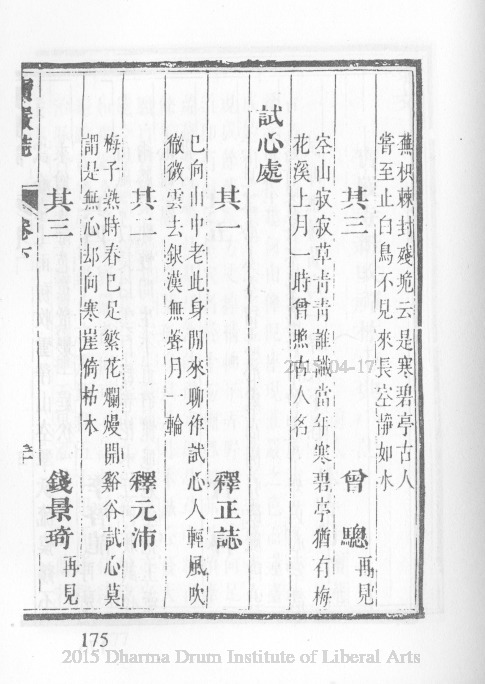 蕪枳棘封殘堍云是寒碧亭古人
嘗至止白鳥不見來長空淨如水
其三 曾驄再見
空山寂寂草青青誰識當年寒碧亭猶有梅
花溪上月一時曾照古人名
試心處
其一 釋正誌
已向山中老此身閒來聊作試心人輕風吹
徹微雲去銀漢無聲月一輪
其二 釋元沛
梅子熟時春已足繁花爛熳開谿谷試心莫
謂是無心却向寒崖倚枯木
其三 錢景琦再見
寶嚴誌 卷下
175
2015-04-17
2015 Dharma Drum Institute of Liberal Arts